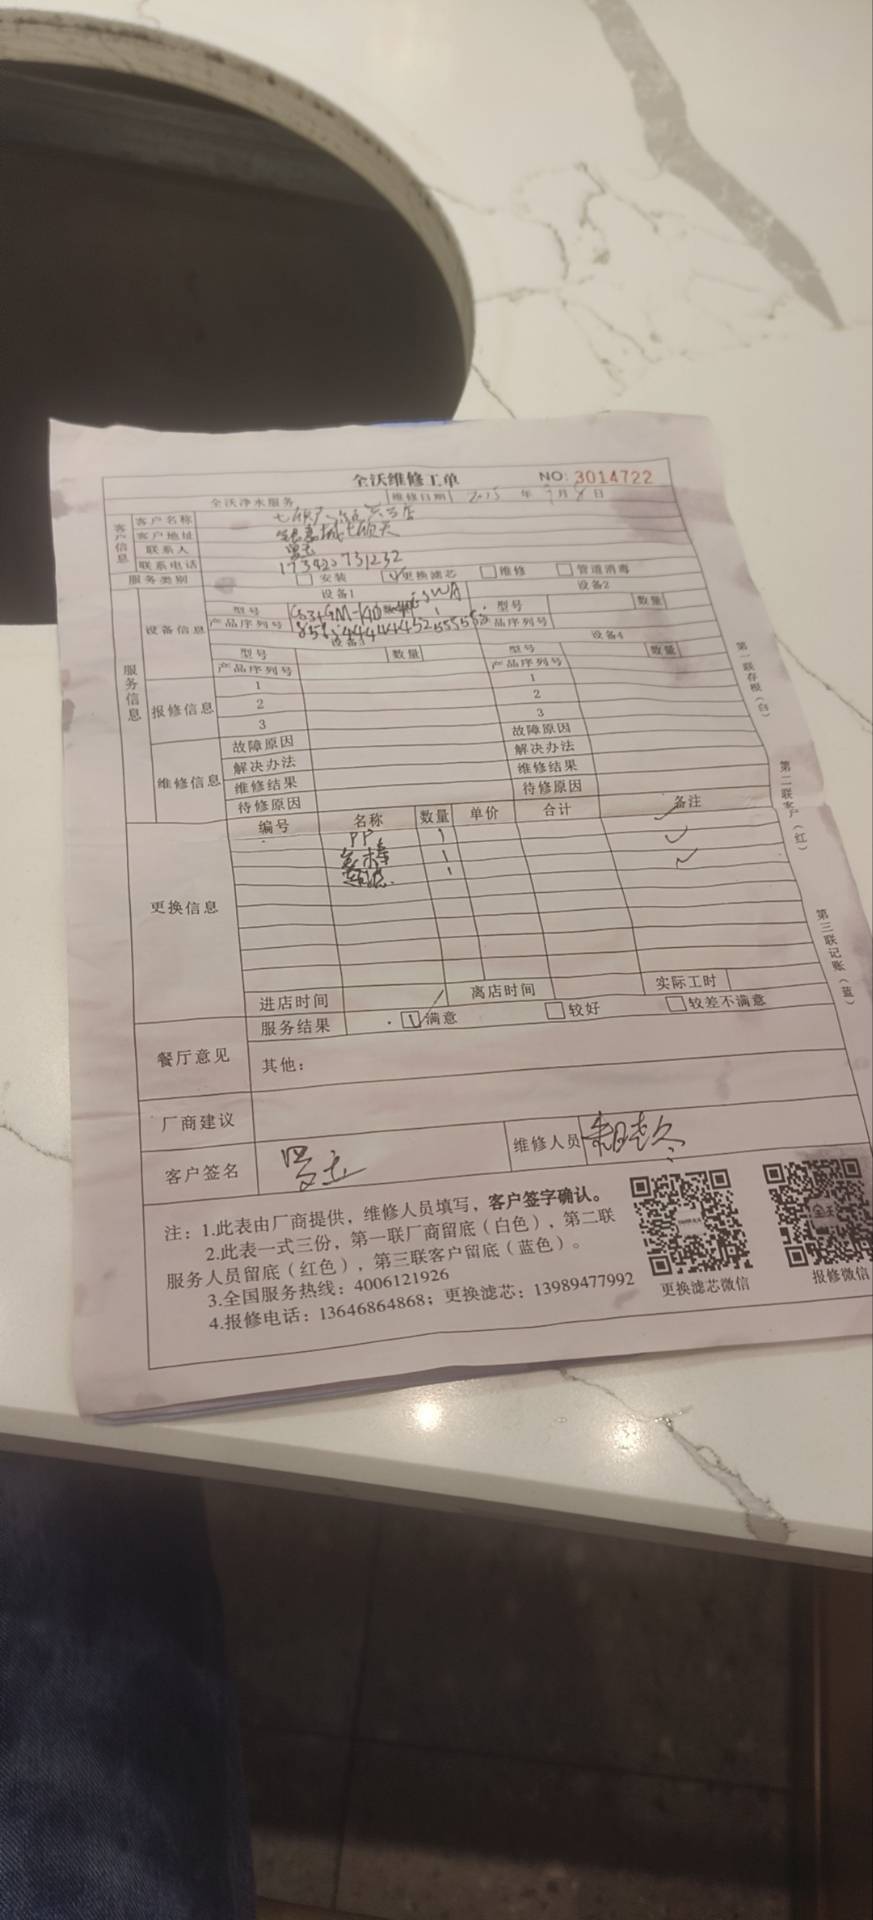 全沃维修工单 NO: 3014722
全沃净水服务 维修日期 年 月 8 日
客户信息
客户名称
客户地址
联系人
联系电话 17342073232
服务类别 安装 更换滤芯 维修 管道消毒
服务信息
设备信息 设备1 设备2
型号 数量 型号 数量
产品序列号 产品序列号
设备3 设备4
型号 数量 型号 数量
产品序列号 产品序列号
报修信息 1 1
2 2
3 3
维修信息 故障原因 故障原因
解决办法 解决办法
维修结果 维修结果
待修原因 待修原因
更换信息 编号 名称 数量 单价 合计 备注
PP 1
1
1
进店时间 离店时间 实际工时
餐厅意见 服务结果 满意 较好 较差不满意
其他：
厂商建议
客户签名 维修人员
注：1.此表由厂商提供，维修人员填写，客户签字确认。
2.此表一式三份，第一联厂商留底（白色），第二联
服务人员留底（红色），第三联客户留底（蓝色）。
3.全国服务热线：4006121926
4.报修电话：13646864868；更换滤芯：13989477992
更换滤芯微信 报修微信
第一联存根（白）
第二联客户（红）
第三联记账（蓝）